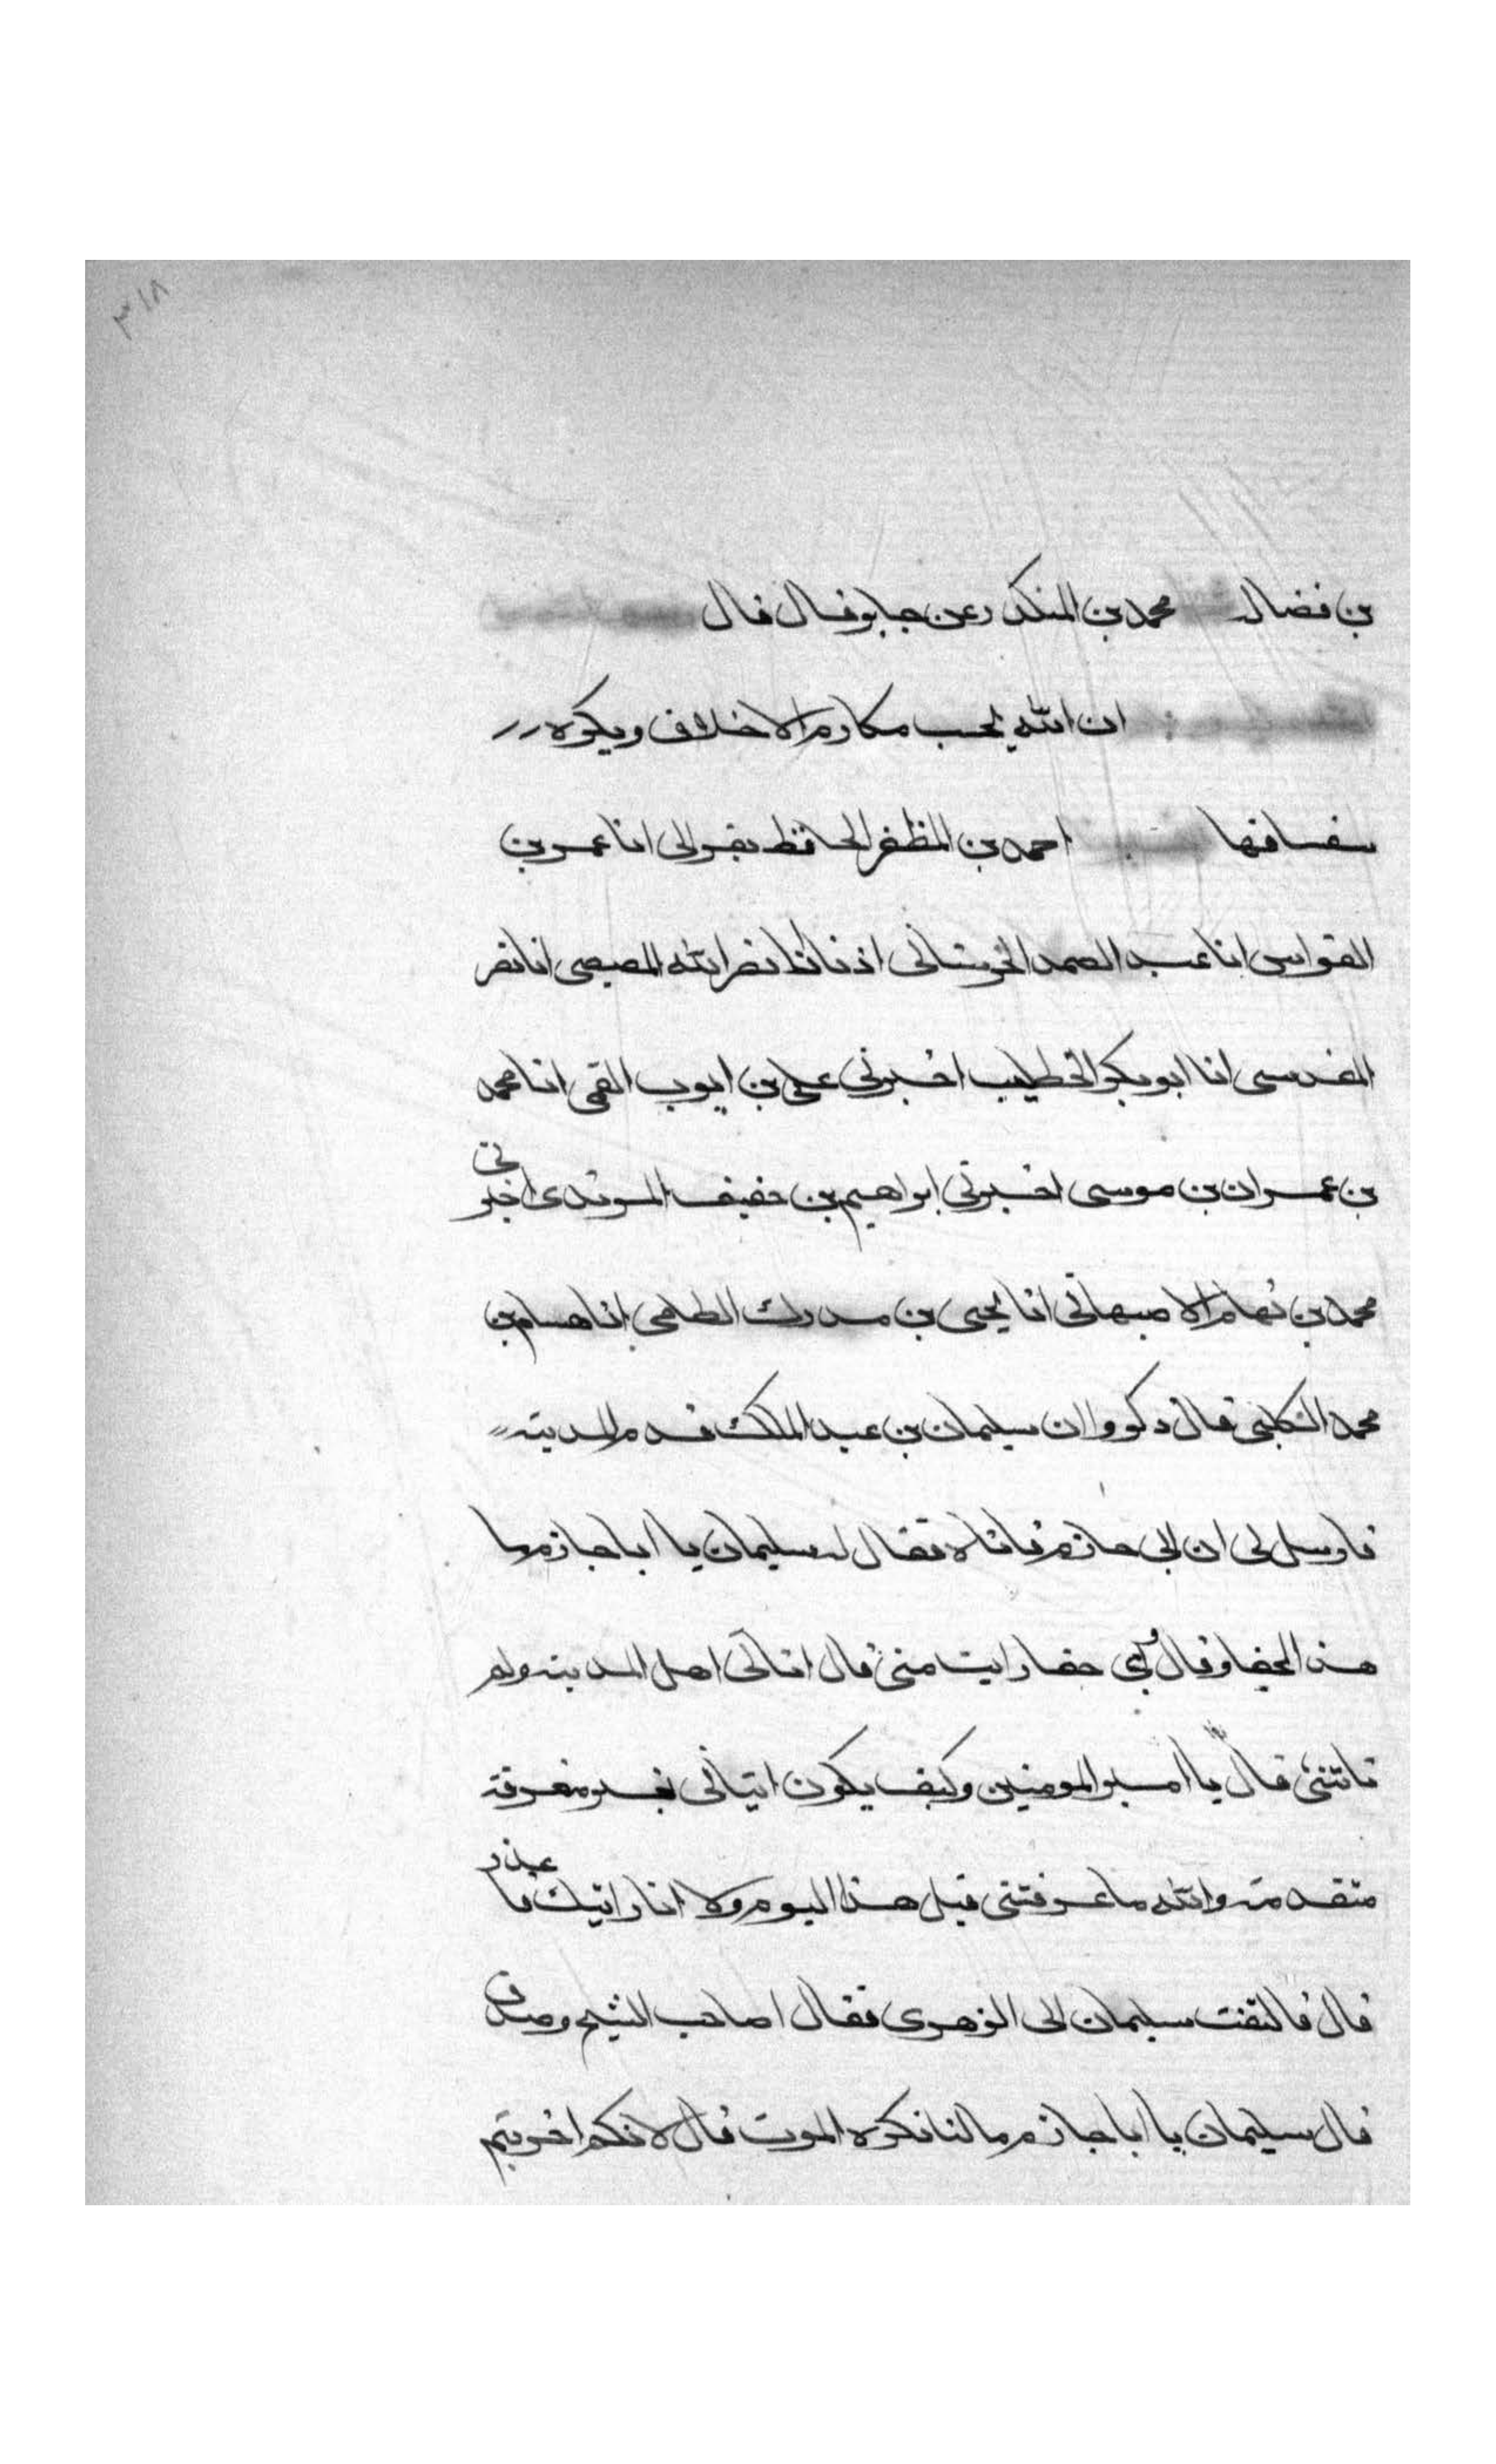 ٣١٨
بن فضال محمد بن المنكدر عن جابر قال قال
ان الله يحب مكارم الاخلاق ويكره
سفسافها احمد بن المظفر الحافظ بقراءتى انا عمر بن
القواس انا عبد الصمد الحرستانى اذنا انا نصر الله المصيصى انا نصر
المقدسى انا ابو بكر الخطيب اخبرنى على بن ايوب القمى انا محمد
بن عمران بن موسى اخبرنى ابراهيم بن خفيف المرثدى اخبرنى
محمد بن همام الاصبهانى انا يحيى بن مدرك الطاحى انا هسام بن
محمد الكلبى قال ذكروا ان سليمان بن عبد الملك قدم المدينة
فارسل الى ابى حازم فاتاه فقال له سليمان يا ابا حازم ما
هذا الجفا وقال واى جفا رايت منى قال اتانى اهل المدينه ولم
تاتنى قال يا امير المومنين وكيف يكون اتيانى بغير معرفة
متقدمة والله ما عرفتنى قبل هذا اليوم ولا انا رايتك فاعذر
قال فالتفت سليمان الى الزهرى فقال اصاب الشيخ وصدق
قال سليمان يا ابا حازم ما لنا نكره الموت قال لانكم اخربتم